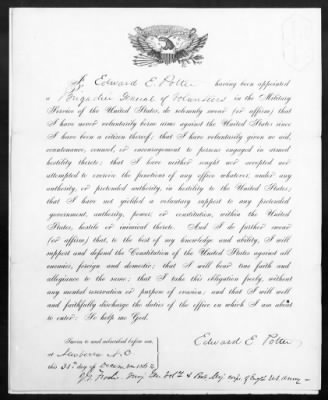 I, Edward E. Potter having been appointed
a Brigadier General of Volunteers in the Military
Service of the United States, do solemnly swear (or affirm) that
I have never voluntarily borne arms against the United States since
I have been a citizen thereof; that I have voluntarily given no aid,
countenance, counsel, or encouragement to persons engaged in armed
hostility thereto; that I have neither sought nor accepted nor
attempted to exercise the functions of any office whatever, under any
authority, or pretended authority, in hostility to the United States;
that I have not yielded a voluntary support to any pretended
government, authority, power, or constitution, within the United
States, hostile or inimical thereto. And I do further swear
(or affirm) that, to the best of my knowledge and ability, I will
support and defend the Constitution of the United States against all
enemies, foreign and domestic; that I will bear true faith and
allegiance to the same; that I take this obligation freely, without
any mental reservation or purpose of evasion; and that I will well
and faithfully discharge the duties of the office on which I am about
to enter: So help me God.
Edward E. Potter
Sworn to and subscribed before me,
at Newbern N.C
this 31st day of December 186
J.G. Foster Maj Gen Vols &